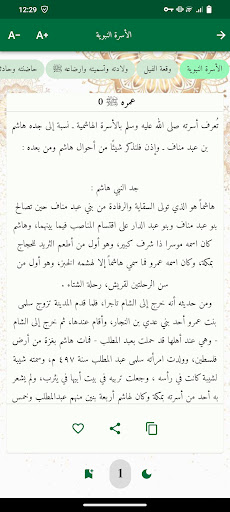 12:29
A- A+ الأسرة النبوية
الأسرة النبوية وقعة الفيل ولادته وتسميته وإرضاعه ﷺ حاضنته وحادثة
عمره ﷺ 0
تُعرف أسرته صلى الله عليه وسلم بالأسرة الهاشمية ـ نسبة إلى جده هاشم
بن عبد مناف ـ وإذن فلنذكر شيئًا من أحوال هاشم ومن بعده :
جد النبي هاشم :
هاشماً هو الذي تولى السقاية والرفادة من بني عبد مناف حين تصالح
بنو عبد مناف وبنو عبد الدار على اقتسام المناصب فيما بينهما، وهاشم
كان موسرا ذا شرف كبير، وهو أول من أطعم الثريد للحجاج
بمكة، وكان اسمه عمرو فما سمي هاشماً إلا لهشمه الخبز، وهو أول من
سن الرحلتين لقريش، رحلة الشتاء .
ومن حديثه أنه خرج إلى الشام تاجرا، فلما قدم المدينة تزوج سلمى
بنت عمرو أحد بني عدي بن النجار، وأقام عندها، ثم خرج إلى الشام
- وهي عند أهلها قد حملت بعبد المطلب - فمات هاشم بغزة من أرض
فلسطين، وولدت امرأته سلمى عبد المطلب سنة ٤٩٧ م، وسمته شيبة
لشيبة كانت في رأسه ، وجعلت تربيه في بيت أبيها في يثرب، ولم يشعر
به أحد من أسرته بمكة وكان لهاشم أربعة بنين منهم عبدالمطلب وخمس
1